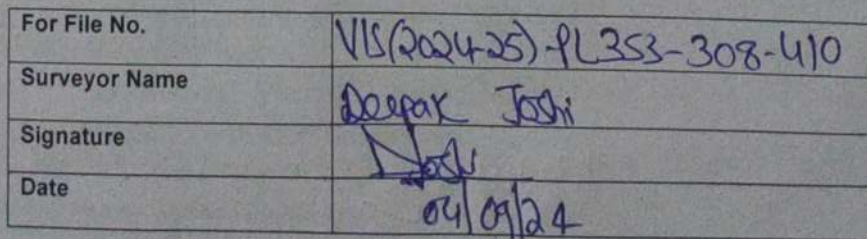 For File No. VIS(2024-25)-PL353-308-410
Surveyor Name Deepak Joshi
Signature Joshi
Date 04/09/24